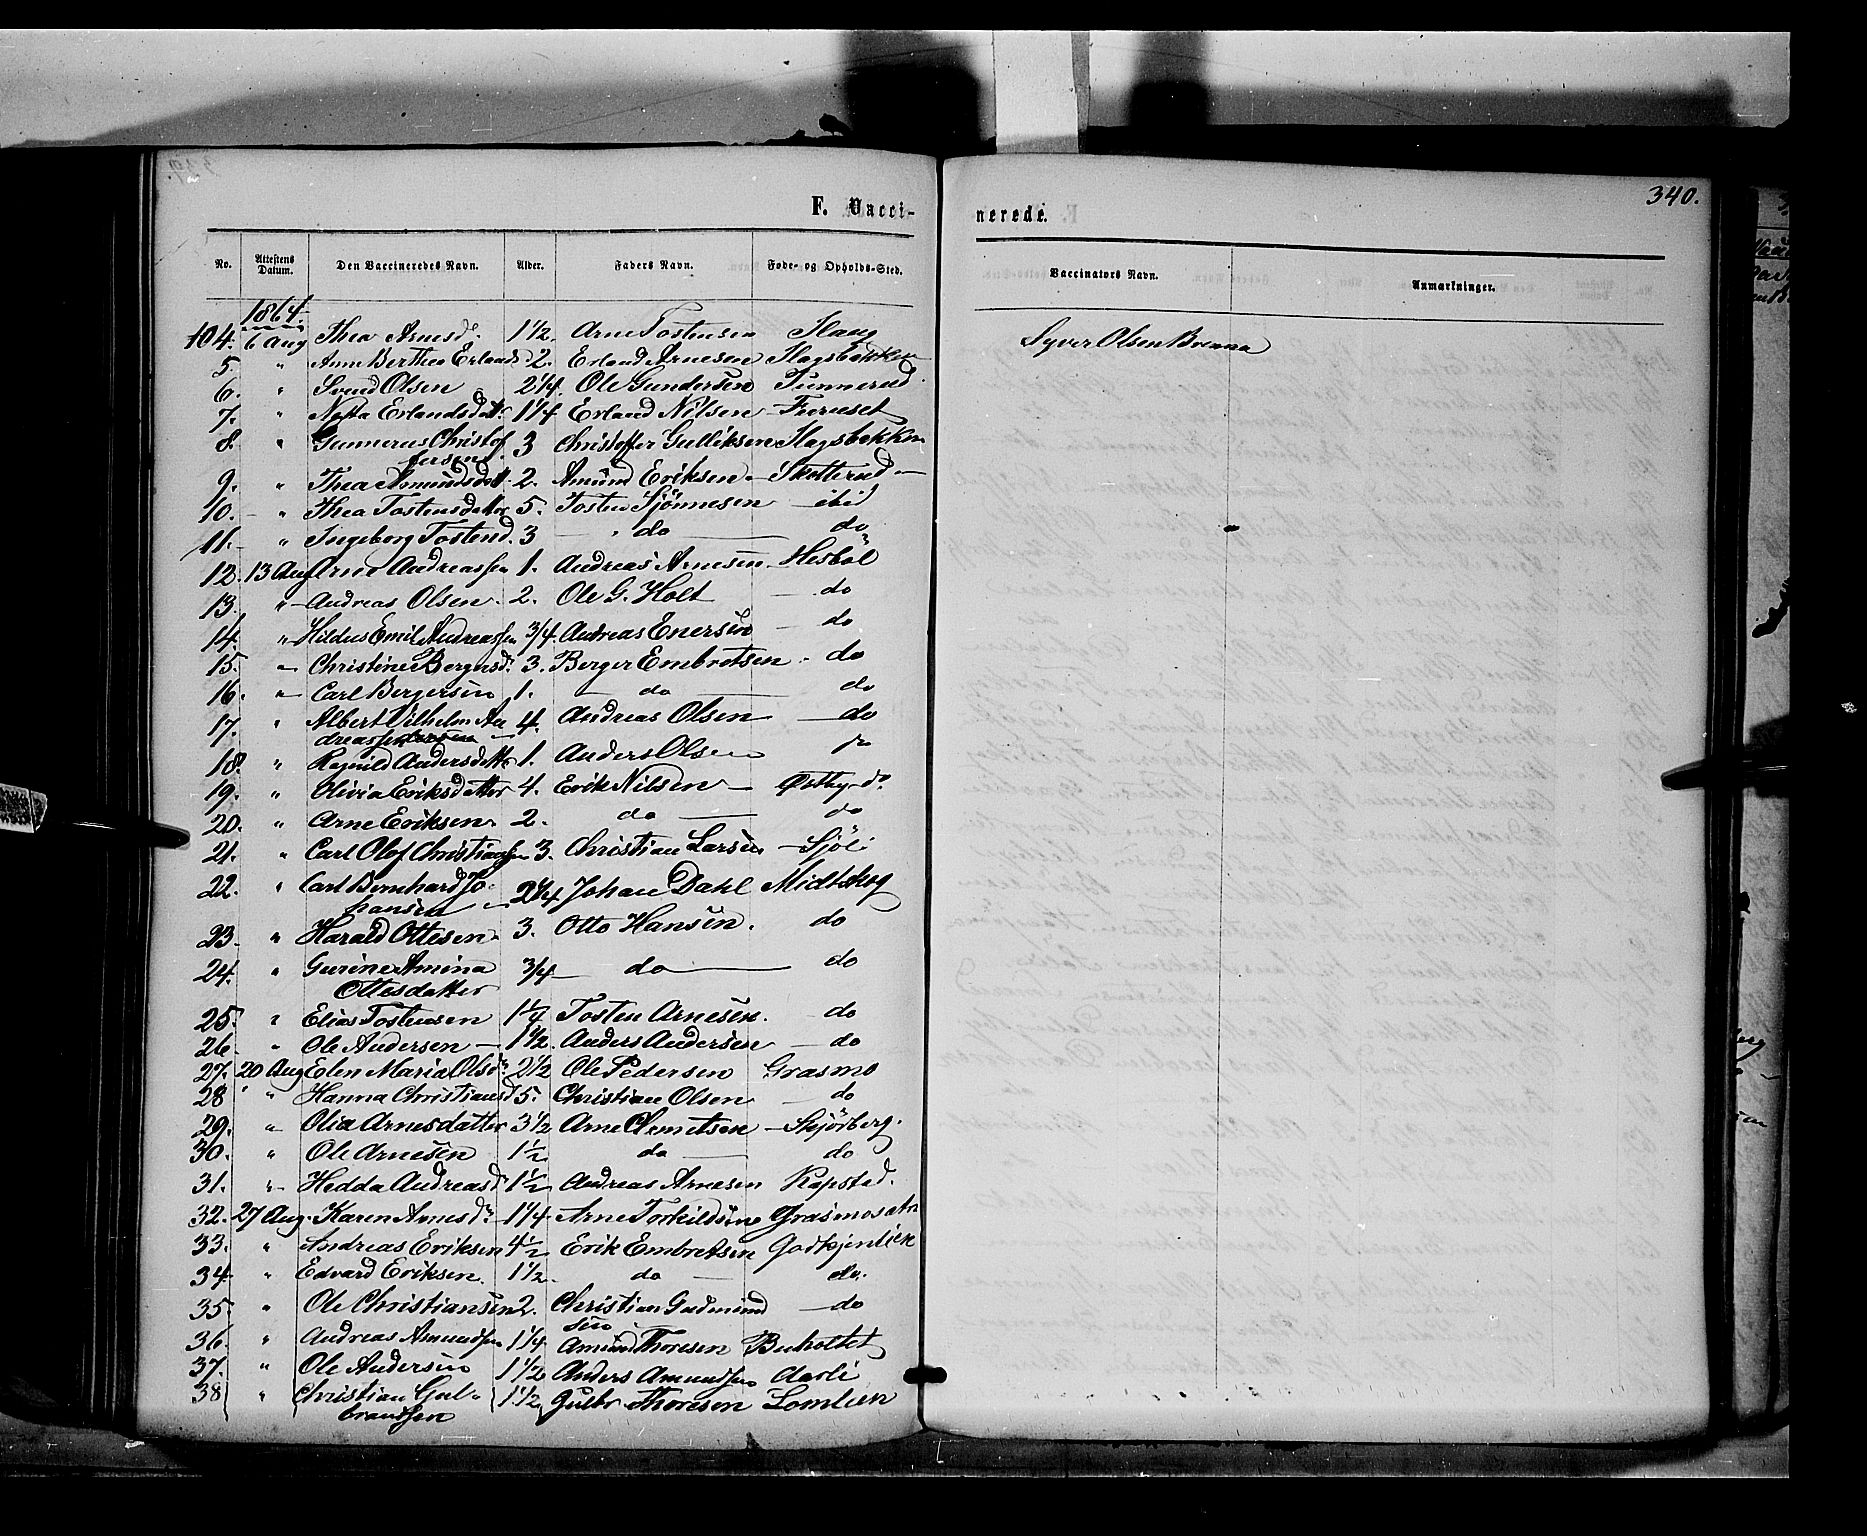 340.
F. Vacci-
nerede.
No. Attestens Datum. Den Vaccineredes Navn. Alder. Faders Navn. Føde- og Opholds-Sted. Vaccinators Navn. Anmærkninger.
1864.
104. 6 Aug Thea Arnesd. 1 1/2. Arne Tostensen Haug Syver Olsen Brenna
5. " Anne Berthea Erlandsd 2. Erland Arnesen Hagsbakken
6. " Svend Olsen 2 1/4. Ole Gundersen Tunnerud.
7. " Erlandsdatr. 1 1/4 Erland Nilsen Furuset
8. " Gunnerus Christof 3 Christoffer Gulliksen Hagsbakken
fersen
9. " Thea Amundsdatt. 2. Amund Eriksen Skotterud
10. " Thea Tostensdatter 5. Tosten Sjönnesen ibid
11. " Ingeborg Tostend. 3 " do do
12. 13 Aug Arne Andreassen 1. Andreas Arnesen Hesböl
13. " Andreas Olsen 2. Ole G. Holt do
14. " Hildus Emil Andreassen 3/4. Andreas Enersen do
15. " Christine Bergersd. 3. Berger Embretsen do
16. " Carl Bergersen 1. do do
17. " Albert Vilhelm An 4. Andreas Olsen do
dreassen
18. " Ragnild Andersdatter 1. Anders Olsen do
19. " Olivia Eriksdatter 4. Erik Nilsen Østby do
20. " Arne Eriksen 2. do do
21. " Carl Olof Christiansen 3. Christian Larsen Sjöli
22. " Carl Bernhard Jo- 2 1/4 Johan Dahl Midtskog
hansen
23. " Harald Ottesen 3. Otto Hansen. do
24. " Gurine Amina 3/4 do do
Ottesdatter
25. " Elias Tostensen 1 1/4 Tosten Arnesen. do
26. " Ole Andersen 1 1/2. Anders Andersen do
27. 20 Aug Elen Maria Olsdr. 2 1/2 Ole Pedersen Grasmo
28 " Hanna Christiansd 5. Christian Olsen do
29. " Olia Arnesdatter 3 1/2 Arne Clemetsen Skjörberg.
30. " Ole Arnesen 1 1/2 do do
31. " Hedda Andreasd 1 1/2 Andreas Arnesen Kopstad.
32. 27 Aug. Karen Arnesdr. 1 1/4 Arne Torkildsen
33. " Andreas Eriksen 4 1/2 Erik Embretsen Godkjenlien
34 " Edvard Eriksen. 1 1/2. do do.
35 " Ole Christiansen 2. Christian Gudmund do
sen
36. " Andreas Amundsen 1 1/4 Amund Thoresen Buholtet
37. " Ole Andersen 1 1/2 Anders Amundsen Aarli
38 " Christian Gul- 1 1/2 Gulbr. Thoresen Lomlien
brandsen